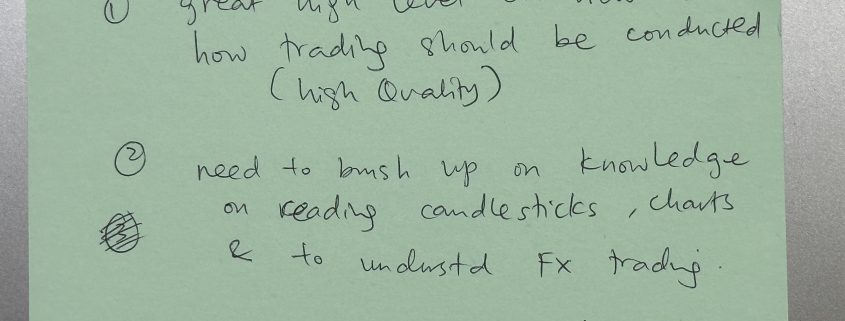 ① great high level
how trading should be conducted
(high Quality)
② need to brush up on knowledge
on reading candlesticks, charts
& to understd FX trading.